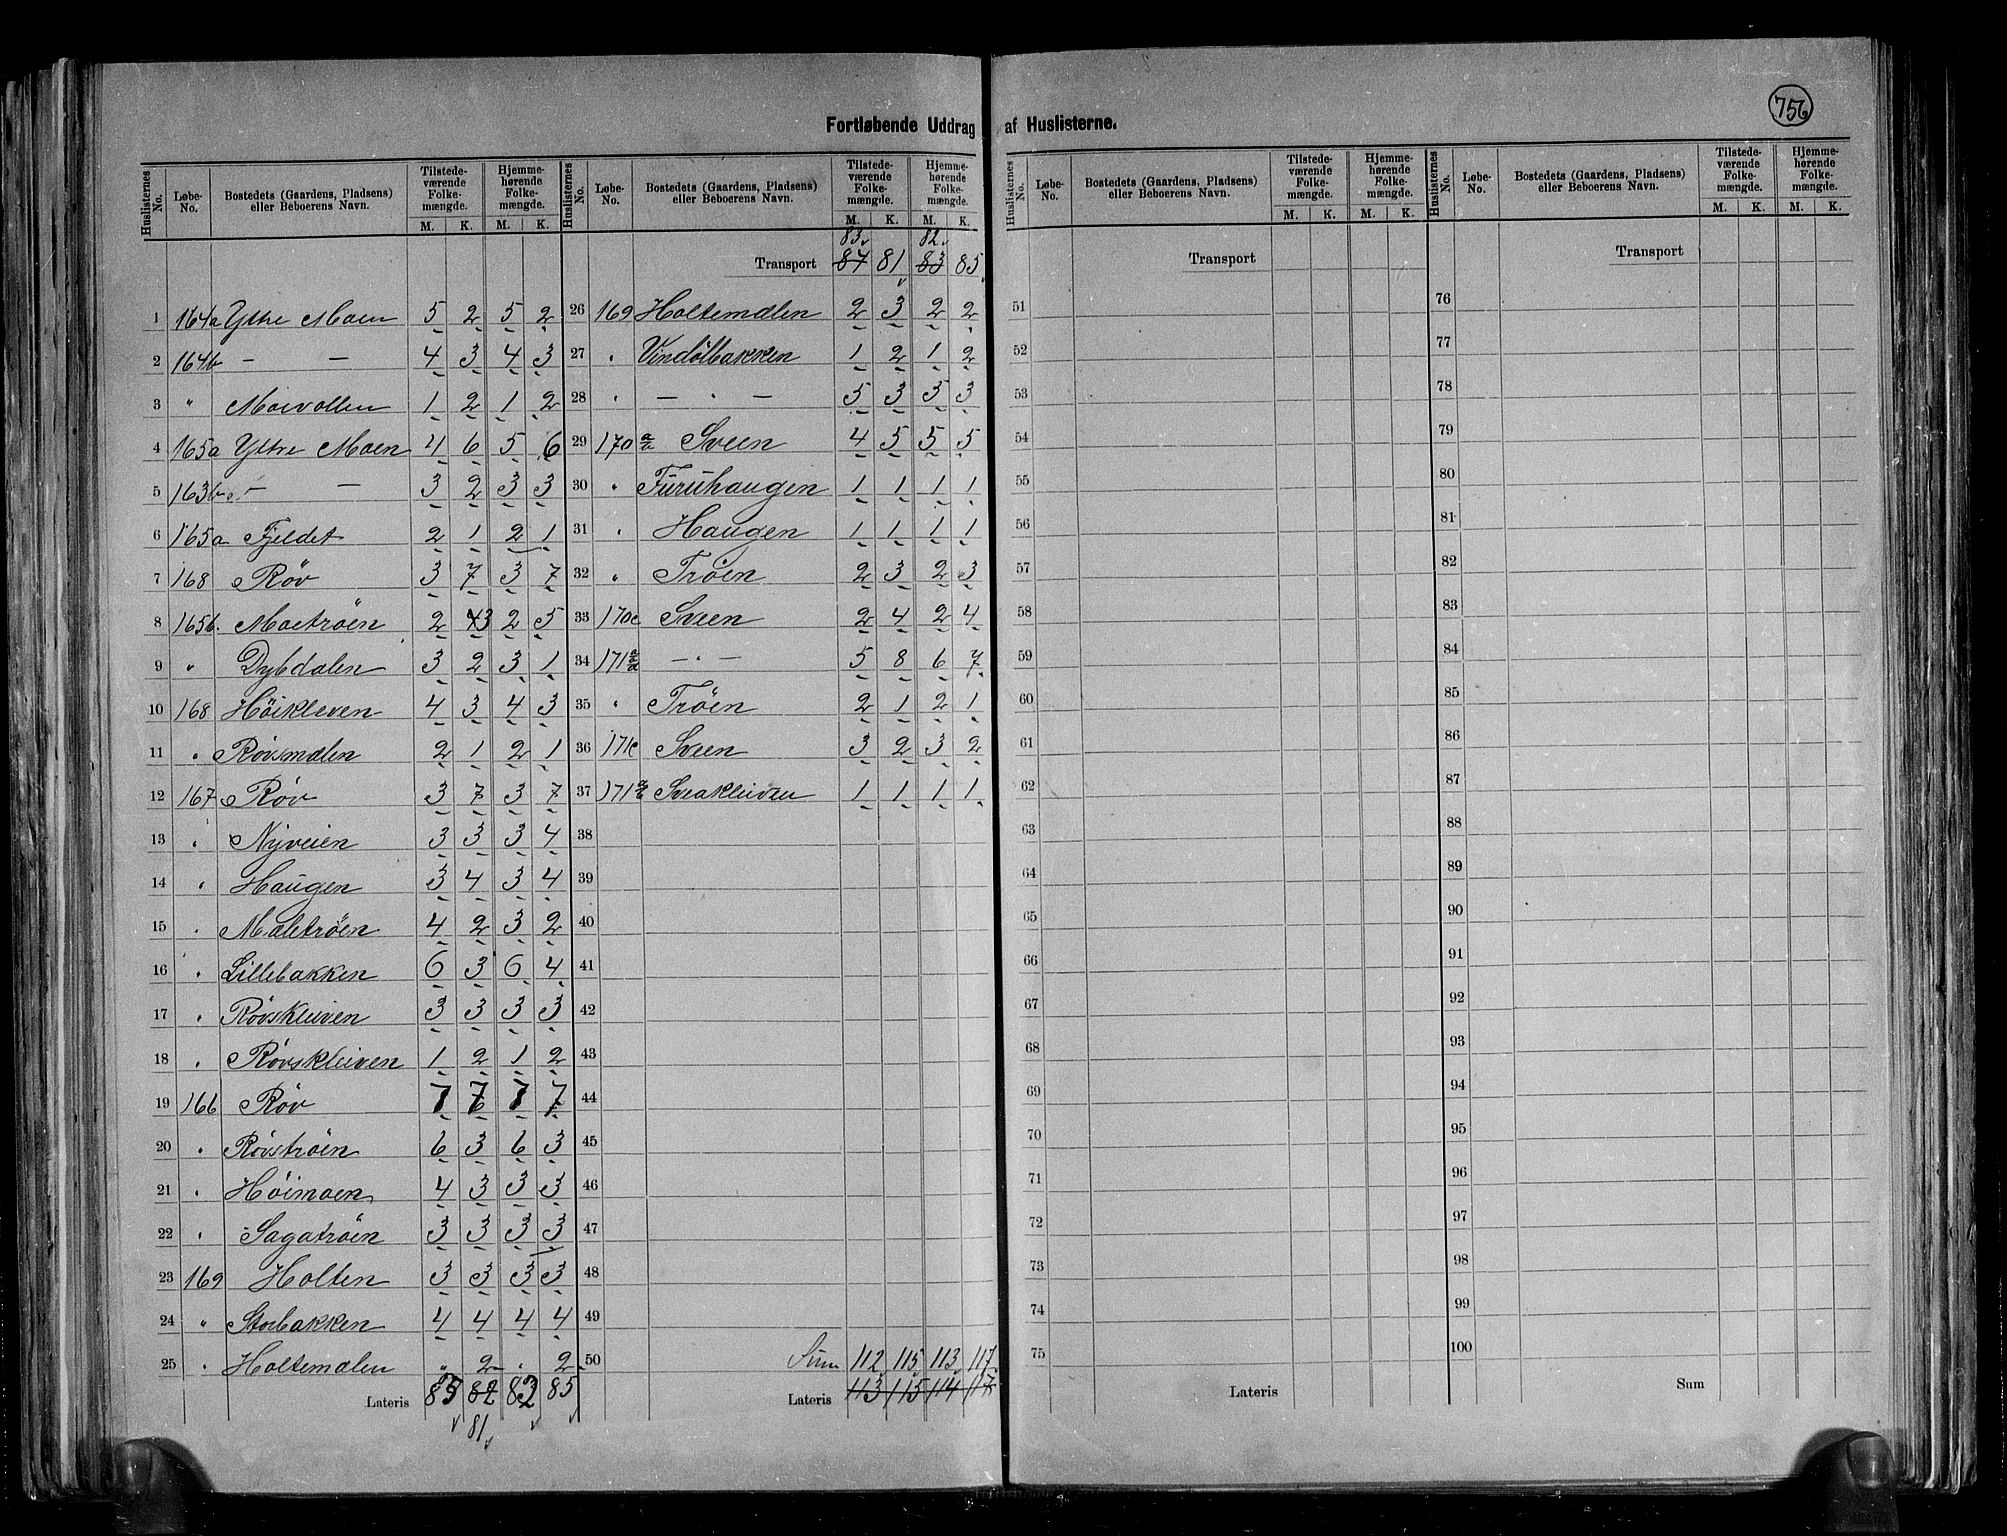 756
Fortløbende Uddrag af Huslisterne.
Huslisternes No. Løbe-No. Bostedets (Gaardens, Pladsens) eller Beboerens Navn. Tilstedeværende Folkemængde. M. K. Hjemmehørende Folkemængde. M. K.
1 164a Ytre Moen 5 2 5 2
2 164b — — 4 3 4 3
3 " Moevollen 1 2 1 2
4 165a Ytre Moen 4 6 5 6
5 163b — — 3 2 3 3
6 165a Fjeldet 2 1 2 1
7 168 Røv 3 7 3 7
8 165b. Moetrøen 2 3 2 5
9 " Dybdalen 3 2 3 1
10 168 Høikleven 4 3 4 3
11 " Røvsmælen 2 1 2 1
12 167 Røv 3 7 3 7
13 " Nyveien 3 3 3 4
14 " Haugen 3 4 3 4
15 " Mæletrøen 4 2 3 2
16 " Lillebakken 6 3 6 4
17 " Røvskleiven 3 3 3 3
18 " Røvskleiven 1 2 1 2
19 166 Røv 7 7 7 7
20 " Røvstrøen 6 3 6 3
21 " Høimoen 4 3 3 3
22 " Sagatrøen 3 3 3 3
23 169 Holten 3 3 3 3
24 " Storbakken 4 4 4 4
25 " Holtemælen " 2 " 2
Lateris 83 82 82 85
81
Huslisternes No. Løbe-No. Bostedets (Gaardens, Pladsens) eller Beboerens Navn. Tilstedeværende Folkemængde. M. K. Hjemmehørende Folkemængde. M. K.
83 82
Transport 87 81 83 85
26 169 Holtemælen 2 3 2 2
27 " Vindølbakken 1 2 1 2
28 " — " — 5 3 5 3
29 170a Sveen 4 5 5 5
30 " Furuhaugen 1 1 1 1
31 " Haugen 1 1 1 1
32 " Trøen 2 3 2 3
33 170c Sveen 2 4 2 4
34 171a — " — 5 8 6 7
35 " Trøen 2 1 2 1
36 171c Sveen 3 2 3 2
37 171 Sveakleiven 1 1 1 1
38
39
40
41
42
43
44
45
46
47
48
49
50 Sum 112 115 113 117
Lateris 113 115 114 117
Huslisternes No. Løbe-No. Bostedets (Gaardens, Pladsens) eller Beboerens Navn. Tilstedeværende Folkemængde. M. K. Hjemmehørende Folkemængde. M. K.
Transport
51
52
53
54
55
56
57
58
59
60
61
62
63
64
65
66
67
68
69
70
71
72
73
74
75
Lateris
Huslisternes No. Løbe-No. Bostedets (Gaardens, Pladsens) eller Beboerens Navn. Tilstedeværende Folkemængde. M. K. Hjemmehørende Folkemængde. M. K.
Transport
76
77
78
79
80
81
82
83
84
85
86
87
88
89
90
91
92
93
94
95
96
97
98
99
100
Sum